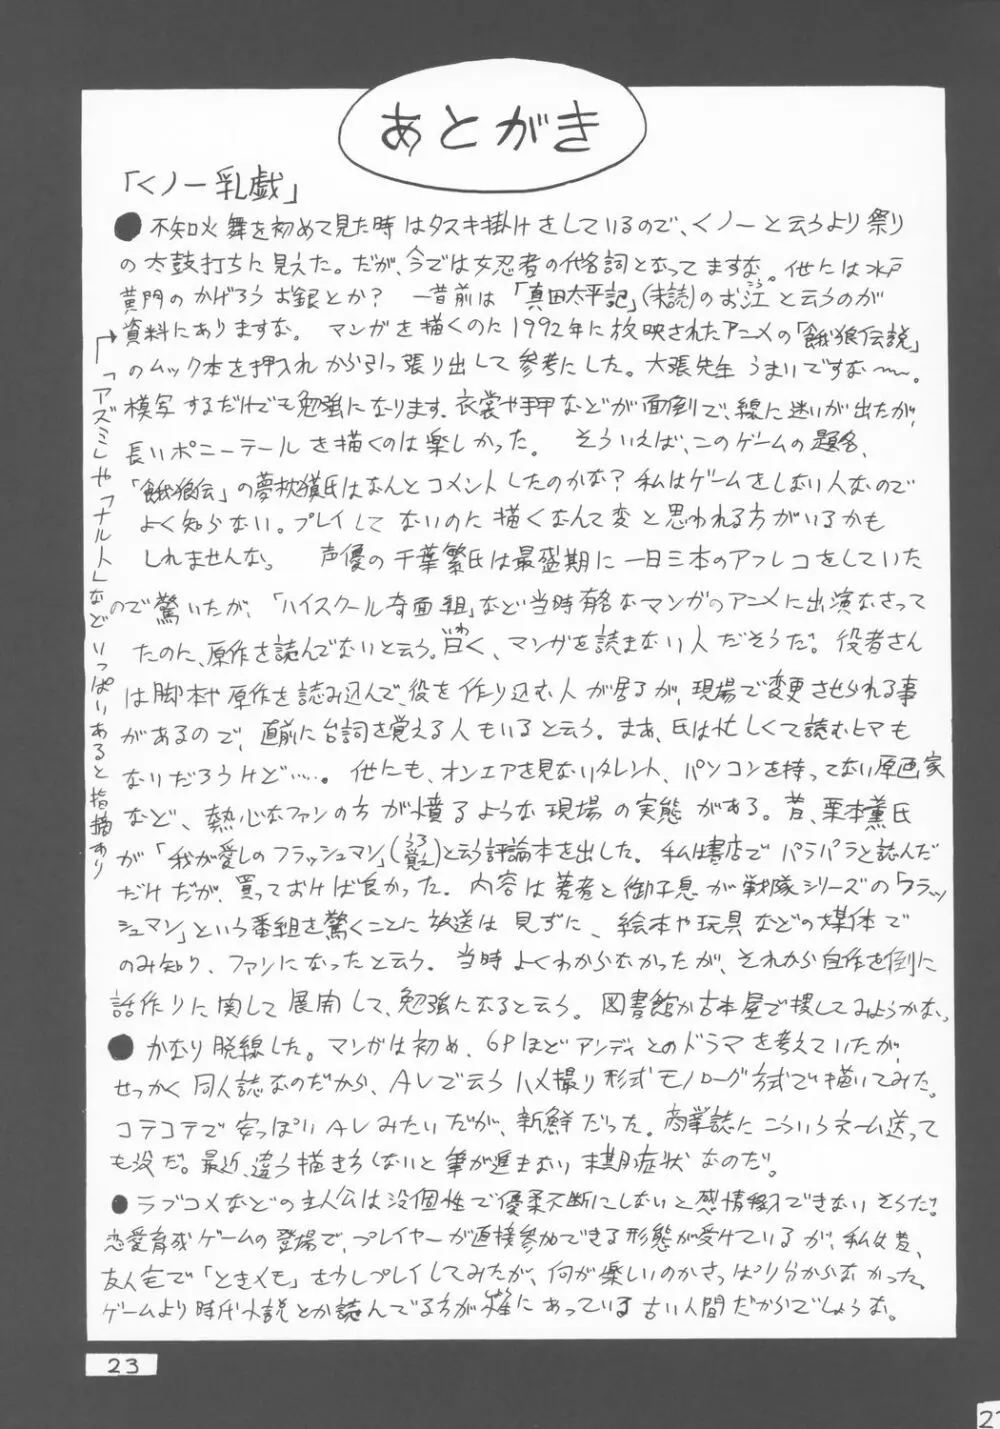 あとがき
「くノ一乳戯」
●不知火舞を初めて見た時はタスキ掛けをしているので、くノ一と云うより祭り
の太鼓打ちに見えた。だが、今では女忍者の代名詞となってますな。他には水戸
黄門のかげろうお銀とか? 一昔前は「真田太平記」(未読)のお江と云うのが
こう
資料にありますな。 マンガを描くのに1992年に放映されたアニメの「餓狼伝説」
のムック本を押入れから引っ張り出して参考にした。大張先生うまいですな〜。
模写するだけでも勉強になります、衣裳や手甲などが面倒で、線に迷いが出たが、
長いポニーテールを描くのは楽しかった。 そういえば、このゲームの題名、
「餓狼伝」の夢枕獏氏はなんとコメントしたのかな?私はゲームをしない人なので
よく知らない。プレイしてないのに描くなんて変と思われる方がいるかも
しれませんな。 声優の千葉繁氏は最盛期に一日三本のアフレコをしていた
ので驚いたが、「ハイスクール奇面組」など当時有名なマンガのアニメに出演なさって
たのに、原作を読んでないと云う。曰く、マンガを読まない人だそうだ。役者さん
いわ
は脚本や原作を読み込んで、役を作り込む人が居るが、現場で変更させられる事
があるので、直前に台詞を覚える人もいると云う。まあ、氏は忙しくて読むヒマも
ないだろうけど…‥。他にも、オンエアを見ないタレント、パソコンを持ってない原画家
など、熱心なファンの方が憤るような現場の実態がある。昔、栗本薫氏
が「我が愛しのフラッシュマン」(うろ覚え)と云う評論本を出した。私は書店でパラパラと読んだ
だけだが、買っておけば良かった。内容は著者と御子息が戦隊シリーズの「フラッ
シュマン」という番組を驚くことに放送は見ずに、絵本や玩具などの媒体で
のみ知り、ファンになったと云う。当時よくわからなかったが、それから自作を例に
話作りに関して展開して、勉強になると云う。図書館か古本屋で捜してみようかな。
●かなり脱線した。マンガは初め、6Pほどアンディとのドラマを考えていたが、
せっかく同人誌なのだから、AVで云うハメ撮り形式モノローグ方式で描いてみた。
コテコテで安っぽいAVみたいだが、新鮮だった。商業誌にこういうネーム送って
も没だ。最近、違う描き方しないと筆が進まない末期症状なのだ。
●ラブコメなどの主人公は没個性で優柔不断にしないと感情移入できないそうだ。
恋愛育成ゲームの登場で、プレイヤーが直接参加できる形態が受けているが、私は昔、
友人宅で「ときメモ」を少しプレイしてみたが、何が楽しいのかさっぱり分からなかった。
ゲームより時代小説とか読んでる方が性にあっている古い人間だからでしょうな。
→「アズミ」や「ナルト」などいっぱいあると指摘あり
23